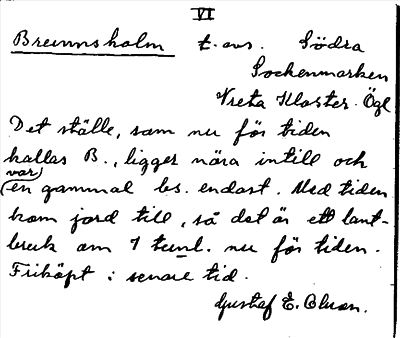 VI
Brunnsholm t. avs. Södra
Sockenmarken
Vreta Kloster. Ögl
Det ställe, som nu för tiden
kallas B., ligger nära intill och
var
(en gammal bs. endast. Med tiden
kom jord till, så det är ett lant-
bruk om 1 tunl. nu för tiden.
Friköpt i senare tid.
Gustaf E.